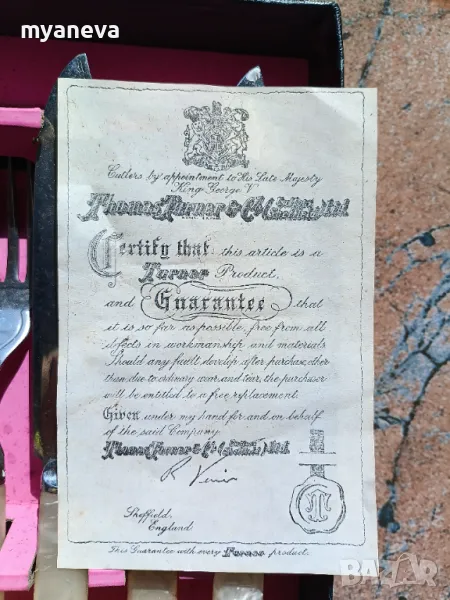 myaneva
Cutlers by appointment to His Late Majesty
King George V
Thomas Turner & Co Ltd.
Certify that this article is a
Turner Product,
and Guarantee that
it is so far as possible, free from all
defects in workmanship and materials
Should any fault develop after purchase, other
than due to ordinary wear and tear, the purchaser
will be entitled to a free replacement.
Given under my hand for and on behalf
of the said Company.
Thomas Turner & Co Ltd.
Sheffield,
England
This Guarantee with every Turner product.
BAZAR